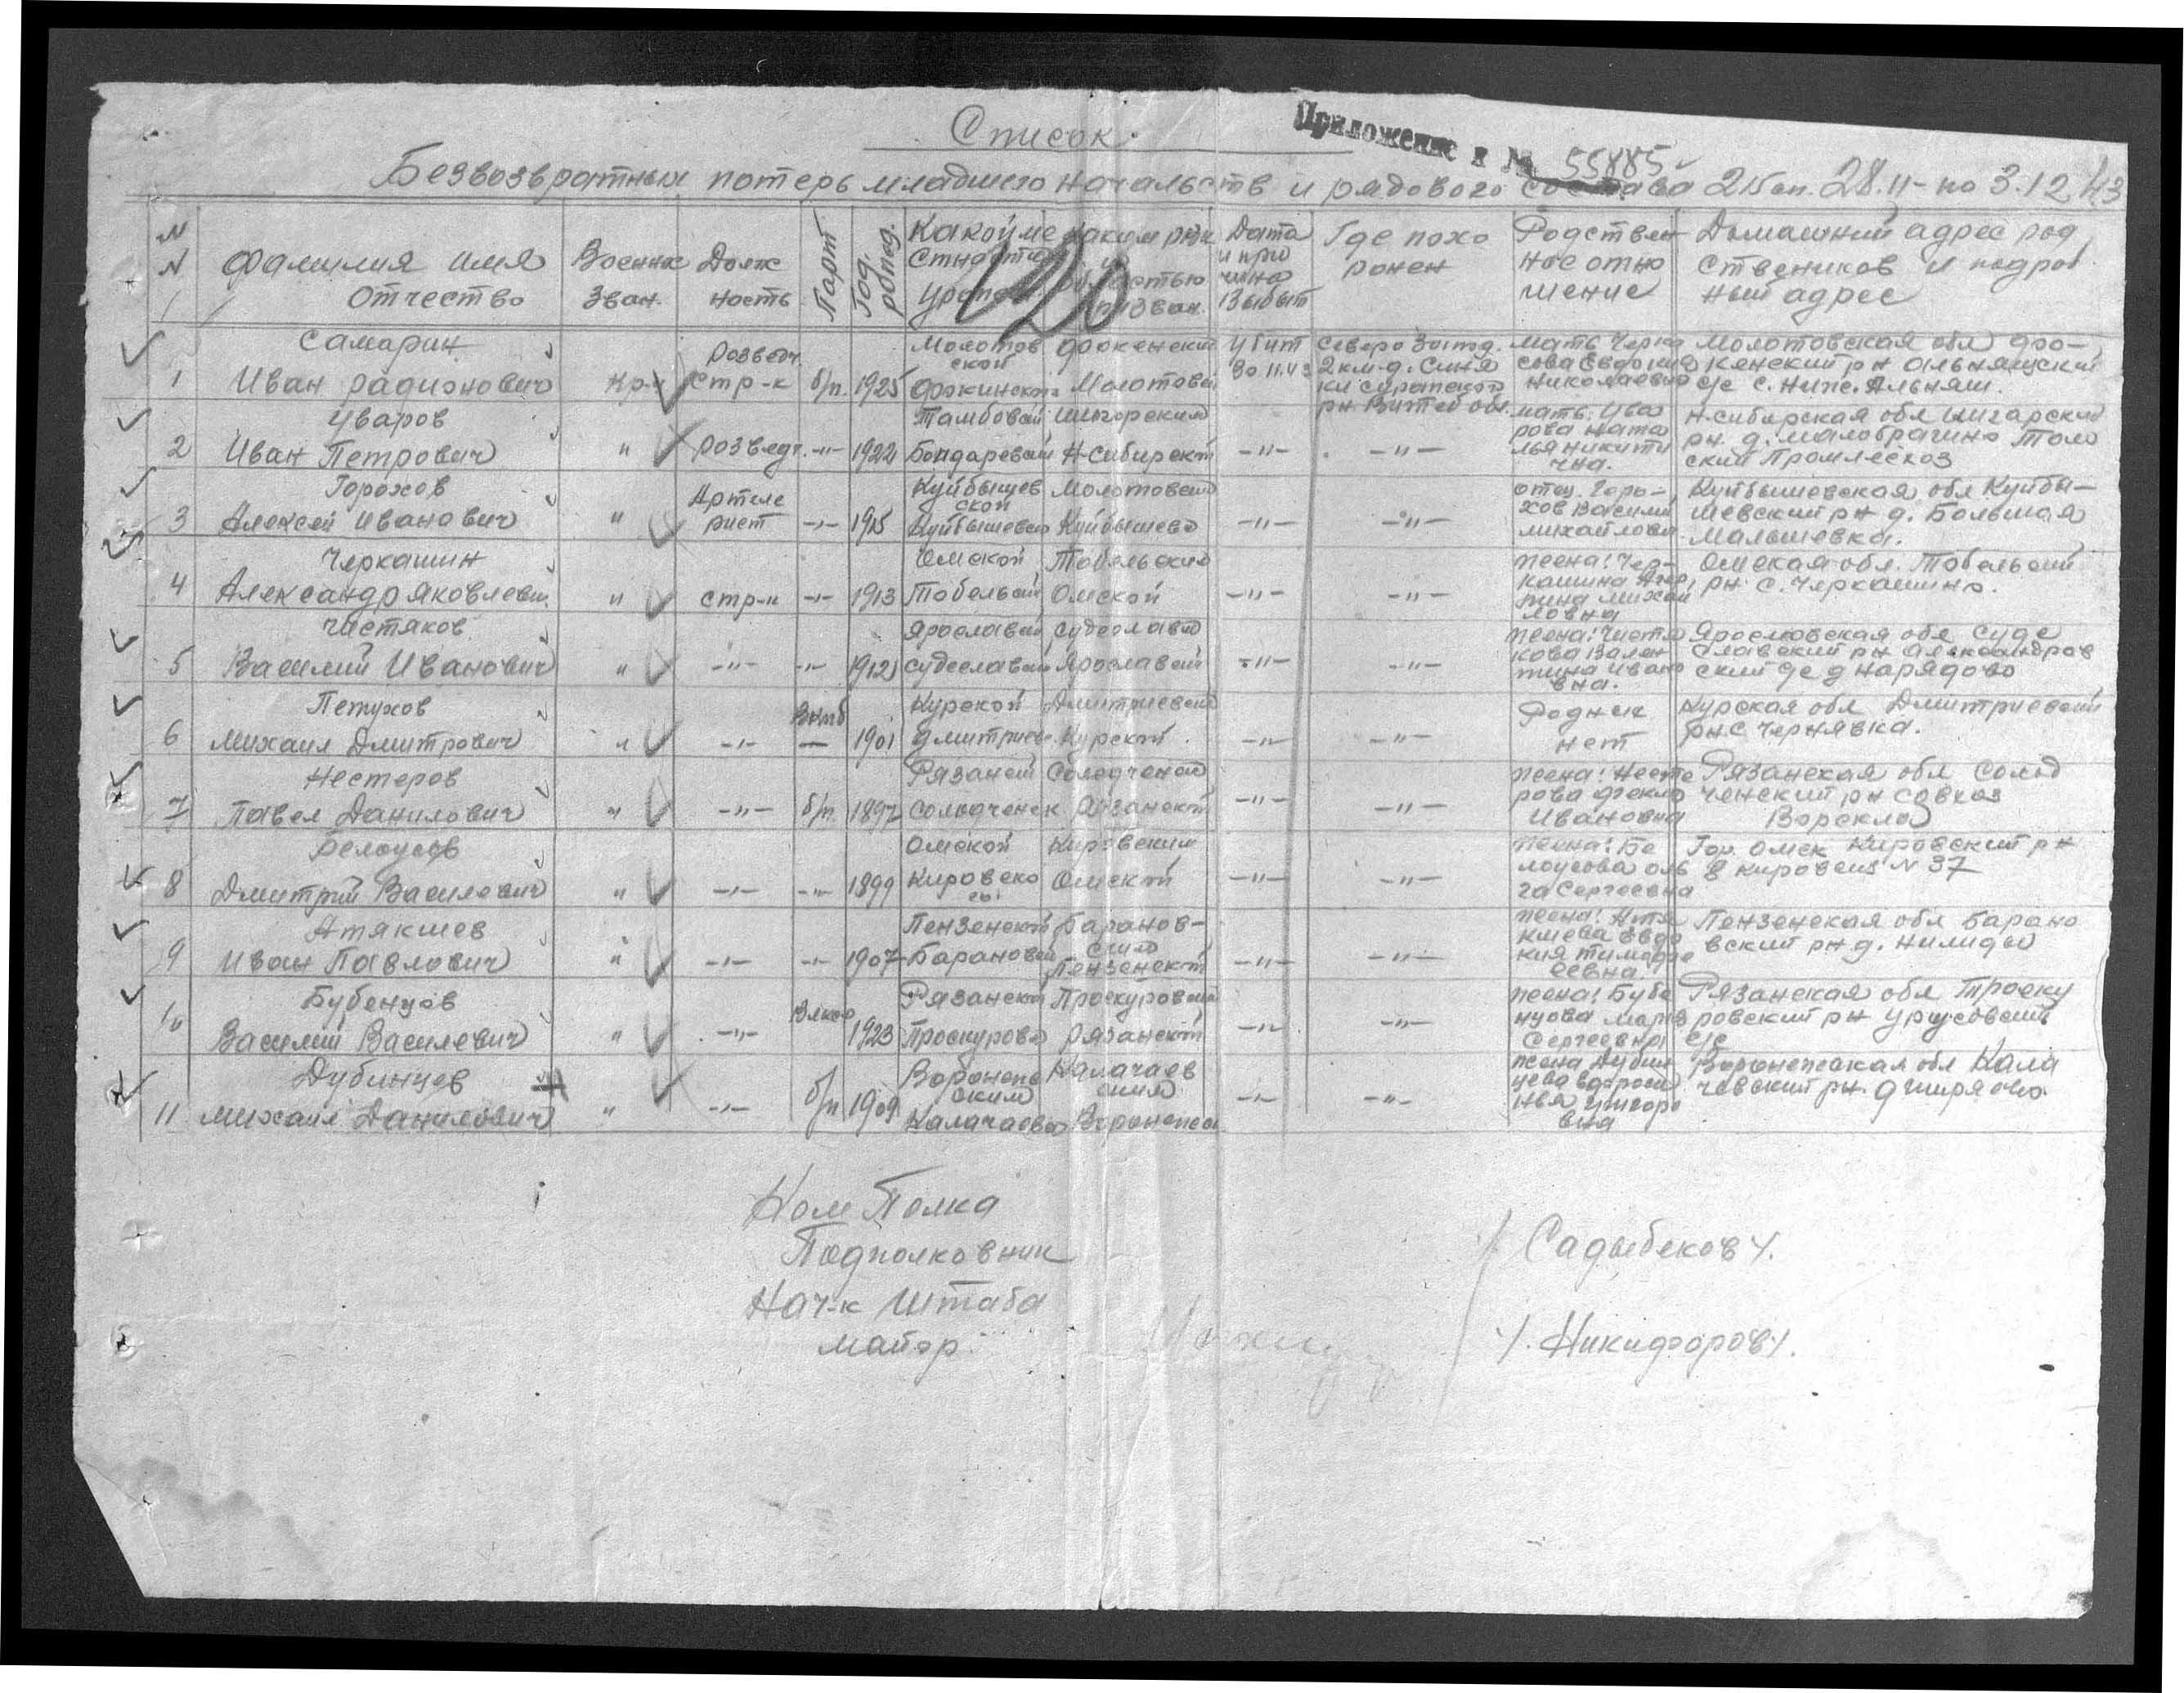 Список
Приложение к № 55885
Безвозвратных потерь младшего начальств и рядового состава 215 сп. 28.11 - по 3.12 43
№ № Фамилия имя Отчество Военное Зван. Долж ность Парт Год. рожд. Какой ме стности Дата и при чина Выбыт Где похо ронен Родствен ное отно шение Домашний адрес род ствеников и подроб ный адрес
120
1 Самарин Иван Радионович кр-ц Розведч. стр-к б/п. 1925 Молотов ской Фокинского Фокенский Молотовск Убит 30.11.43 Северо Запад. 2 км. д. Синя ки Суражского рн Витеб обл. мать Черка сова Евдокия Николаевна Молотовская обл Фо- кенский рн Альняшский с/с с. Ниж. Альняш.
2 Уваров Иван Петрович " розведч. -"- 1922 Тамбовск Бондаревский Шигорским Н-Сибирской -"- -"- мать. Ува рова Ната лья Никити чна. Н-сибирская обл Шигарский рн. д. Малобрагино Томо ский Промлесхоз
3 Горохов Алексей Иванович " Артиле рист -"- 1915 Куйбышев ской Куйбышевск Молотовским Куйбышевс -"- -"- отец. Горо- хов Васили Михайлови Куйбышевская обл Куйбы- шевский рн д. Большая Малышевка.
4 Черкашин Александр Яковлевич " стр-к -"- 1913 Омской Тобельский Тобельским Омской -"- -"- жена: Чер- кашина Агри пина Михай ловна Омская обл. Тобельский рн. с. Черкашино.
5 Чистяков Василий Иванович " -"- -"- 1912 Ярославск Судеславск Судеславс Ярославской -"- -"- жена: Чистя кова Вален тина Ивано вна. Ярославская обл Суде славский рн Александров ский с/с д Нарядово
6 Петухов Михаил Дмитрович " -"- Вкпб 1901 Курской Дмитриевс Дмитриевский Курской -"- -"- Родных нет Курская обл Дмитриевский рн с Чернявка.
7 Нестеров Павел Данилович " -"- б/п. 1897 Рязанской Солодченск Солодченск Рязанской -"- -"- жена: Несте рова Фекла Ивановна Рязанская обл Солод ченский рн совхоз Ворскла
8 Белоусов Дмитрий Василевич " -"- -"- 1899 Омской Кировско го Кировским Омской -"- -"- жена: Бе лоусова Оль га Сергеевна Гор. Омск Кировский рн 8 Кировск N 37
9 Атякшев Иван Павлович " -"- -"- 1907 Пензенской Барановск Баранов- ским Пензенской -"- -"- жена: Атя кшева Евдо кия Тимофе евна. Пензенская обл Барано вский рн д. Нилиды
10 Бубенцов Василий Василевич " -"- Влксм 1923 Рязанской Проскуровс Проскуровский Рязанской -"- -"- жена: Бубе нцова Мария Сергеевна Рязанская обл Троеку ровский рн Урусовский с/с
11 Дубинцев Михаил Данилович " -"- б/п 1909 Воронеж ским Калачаевс Калачаев ским Воронежск -"- -"- жена Дубин цева Ефроси нья Григоро вна Воронежская обл Кала чевский рн. д Ширяево
Ком Полка
Подполковник /Садыбеков/.
Нач-к Штаба
майор. /Никифоров/.